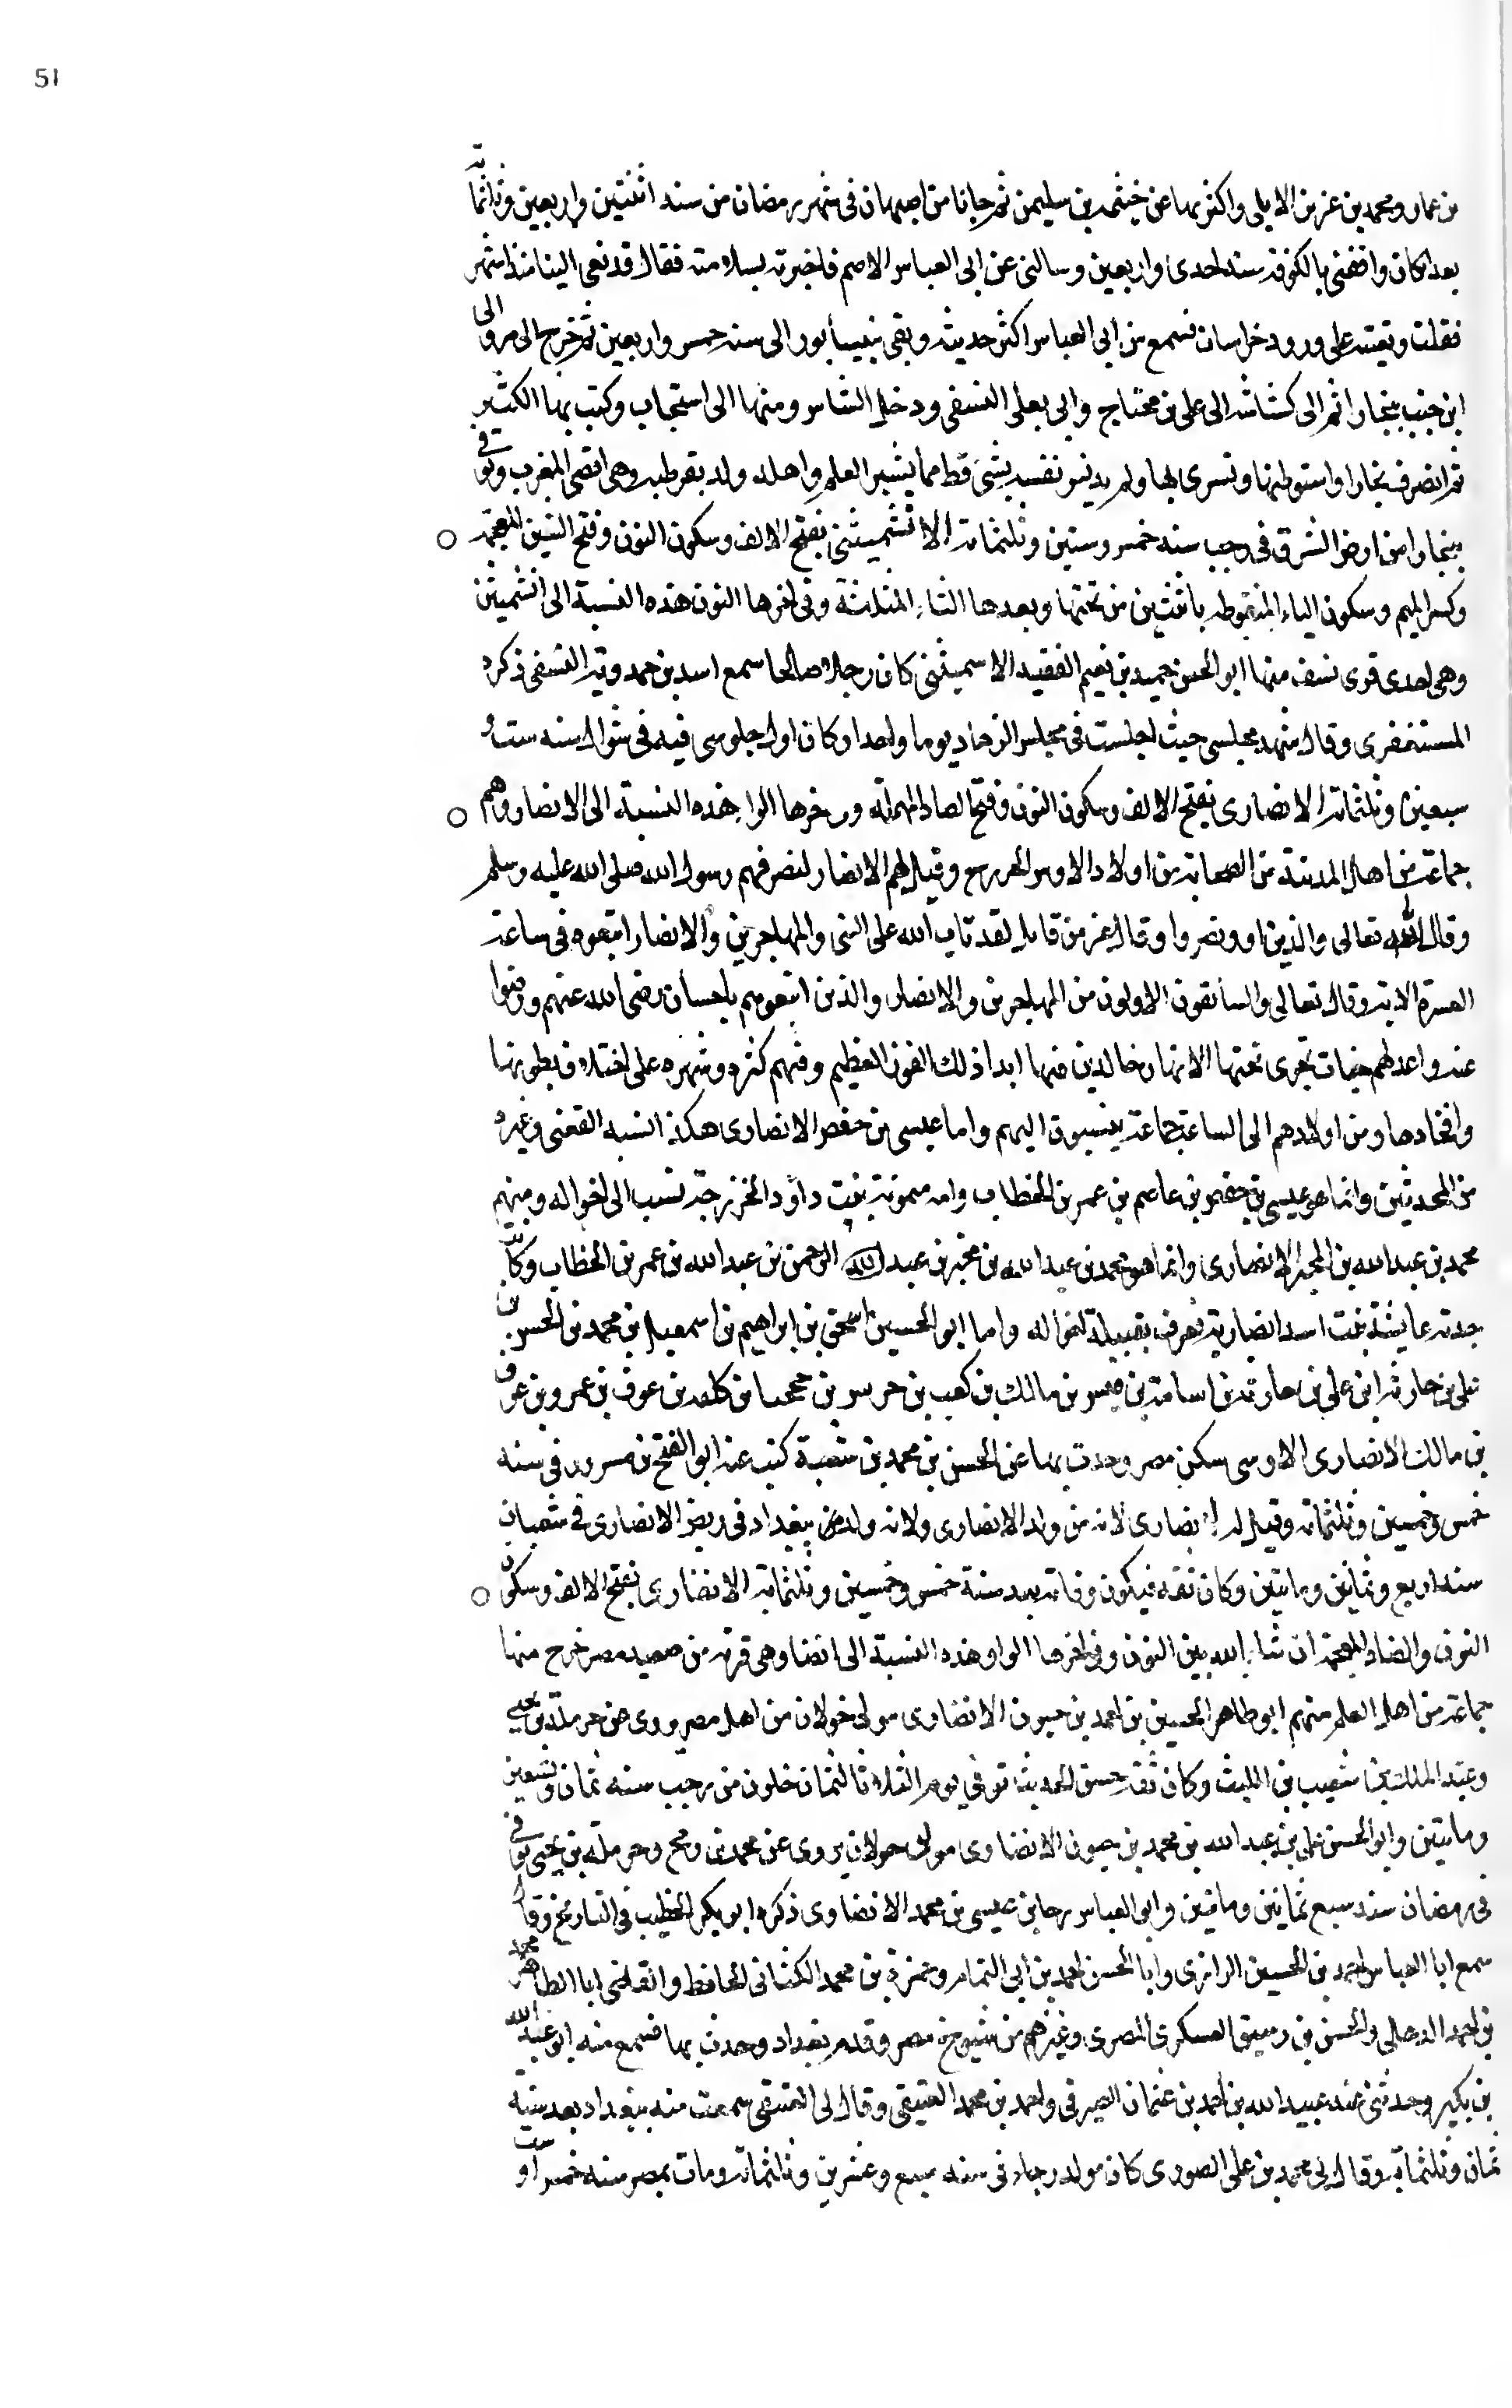 51
بن عمار ومحمد بن عزيز الايلى واكثر بها عن خيثمة بن سليمن ثم جانا من اصبهان فى شهر رمضان من سنه اثنتين واربعين وثلثمائة
بعد ان كان وافقنى بالكوفه سنه احدى واربعين وسالنى عن ابى العباس الاصم فاخبرته بسلامته فقال قد نعى الينا منذ اشهر
فقلت وبعثته على ورود خراسان فسمع من ابى العباس اكثر حديثه وبقى بنيسابور الى سنه خمس واربعين ثم خرج الى مرو الى
ابن خنب ببخارا ثم الى كشانيه الى على بن محتاج وابى يعلى النسفى ودخل الشاس ومنها الى اسبيجاب وكتب بها الكثير
ثم انصرف بخارا واستوطنها وتسرى بها ولم يدنس نفسه بشئ قط مما يشين العلم واهله ولد بقرطبه وهى اقصى المغرب وتوفى
ببخارا من ارض الشرق فى رجب سنه خمس وستين وثلثمائه الانشميثنى بفتح الالف وسكون النون وفتح الشين المعجمه
وكسر الميم وسكون الياء المنقوطه باثنتين من تحتها وبعدها الثاء المثلثة وفى اخرها النون هذه النسبة الى انشميثن
وهى احدى قرى نسف منها ابو الحسن حميد بن نعيم الفقيه الاسميثنى كان رجلا صالحا سمع اسد بن حمدويه النسفى ذكره
المستغفرى وقال شهد مجلسى حيث اجلست فى مجلس الزهاد يوما واحدا وكان اول جلوسى فيه فى شوال سنه ست و
سبعين وثلثمائه الانصارى بفتح الالف وسكون النون وفتح الصاد المهملة وفى اخرها الراء هذه النسبة الى الانصار وهم
جماعة من اهل المدينة من الصحابة من اولاد الاوس والخزرج وقيل لهم الانصار لنصرتهم رسول الله صلى الله عليه وسلم
وقال الله تعالى والذين اووا ونصروا وقال عز من قايل لقد تاب الله على النبى والمهاجرين والانصار اتبعوه فى ساعة
العسرة الاية وقال تعالى والسابقون الاولون من المهاجرين والانصار والذين اتبعوهم باحسان رضى الله عنهم ورضوا
عنه واعد لهم جنات تجرى تحتها الانهار خالدين فيها ابدا ذلك الفوز العظيم وفيهم كثرة وشهرة على اختلاف بطونها
وافخاذها ومن اولادهم الى الساعة جماعة ينسبون اليهم واما عيسى بن حفص الانصارى هكذا نسبه القعنبى وغيره
من المحدثين وانما هو عيسى بن حفص بن عاصم بن عمر بن الخطاب وامه ميمونة بنت داود الخزرجية نسب الى اخواله ومنهم
محمد بن عبد الله بن المجبر الانصارى وانما هو محمد بن عبد الله بن مجبر بن عبد الله الرحمن بن عبد الله بن عمر بن الخطاب وكانت
جدته عايشة بنت اسد انصارية فعرف بقبيلة اخواله واما ابو الحسين اسحق بن ابراهيم بن اسمعيل بن محمد بن الحسن بن
على بن حارثه ابن على بن حارثه بن اسامة بن ميس بن مالك بن كعب بن حريس بن جحجبا بن كلفه بن عوف بن عمرو بن عوف
بن مالك الانصارى الاوسى سكن مصر وحدث بها عن الحسن بن محمد بن شعبة كتب عنه ابو الفتح بن مسرور فى سنه
خمس وخمسين وثلثمائه وقيل له انصارى لانه من ولد الانصارى ولانه ولد ببغداد فى ربض الانصارى فى شعبان
سنه اربع وثمانين ومايتين وكان ثقه فيكون وفاته بعد سنة خمس وخمسين وثلثمائه الانضناوى بفتح الالف وسكون
النون والضاد المعجمه ان شاء الله بين النون وفى اخرها الواو هذه النسبة الى انضنا وهى قرية من صعيد مصر خرج منها
جماعة من اهل العلم منهم ابو طاهر الحسين بن احمد بن حيون الانضناوى مولى خولان من اهل مصر يروى عن حرملة بن يحيى
وعبد الملك بن شعيب بن الليث وكان ثقه حسن الحديث توفى يوم الثلاثا لثمان خلون من رجب سنه ثمان وتسعين
ومايتين وابو الحسن على بن عبد الله بن محمد بن حيون الانضناوى مولى خولان يروى عن محمد بن رمح وحرملة بن يحيى توفى
فى رمضان سنه سبع ثمانين ومايتين وابو العباس رجا بن عيسى بن محمد الانضناوى ذكره ابو بكر الخطيب فى التاريخ وقال
سمع ابا العباس احمد بن الحسين الرازى وابا الحسن احمد بن ابى التمام وحمزة بن محمد الكنانى الحافظ والقاضى ابا الطاهر محمد
بن احمد الدهلى والحسن بن رشيق العسكرى المصرى وغيرهم من شيوخ مصر وقدم بغداد وحدث بها فسمع منه ابو عبد الله
بن بكير وحدثنى عنه عبيد الله بن احمد بن عثمان الصيرفى واحمد بن محمد العتيقى وقال لى العتيقى سمعت منه ببغداد بعد سنة
ثمان وثلثمائة وقال لى محمد بن على الصورى كان مولد رجا فى سنه سبع وعشرين وثلثمائه ومات بمصر سنه خمس او ست